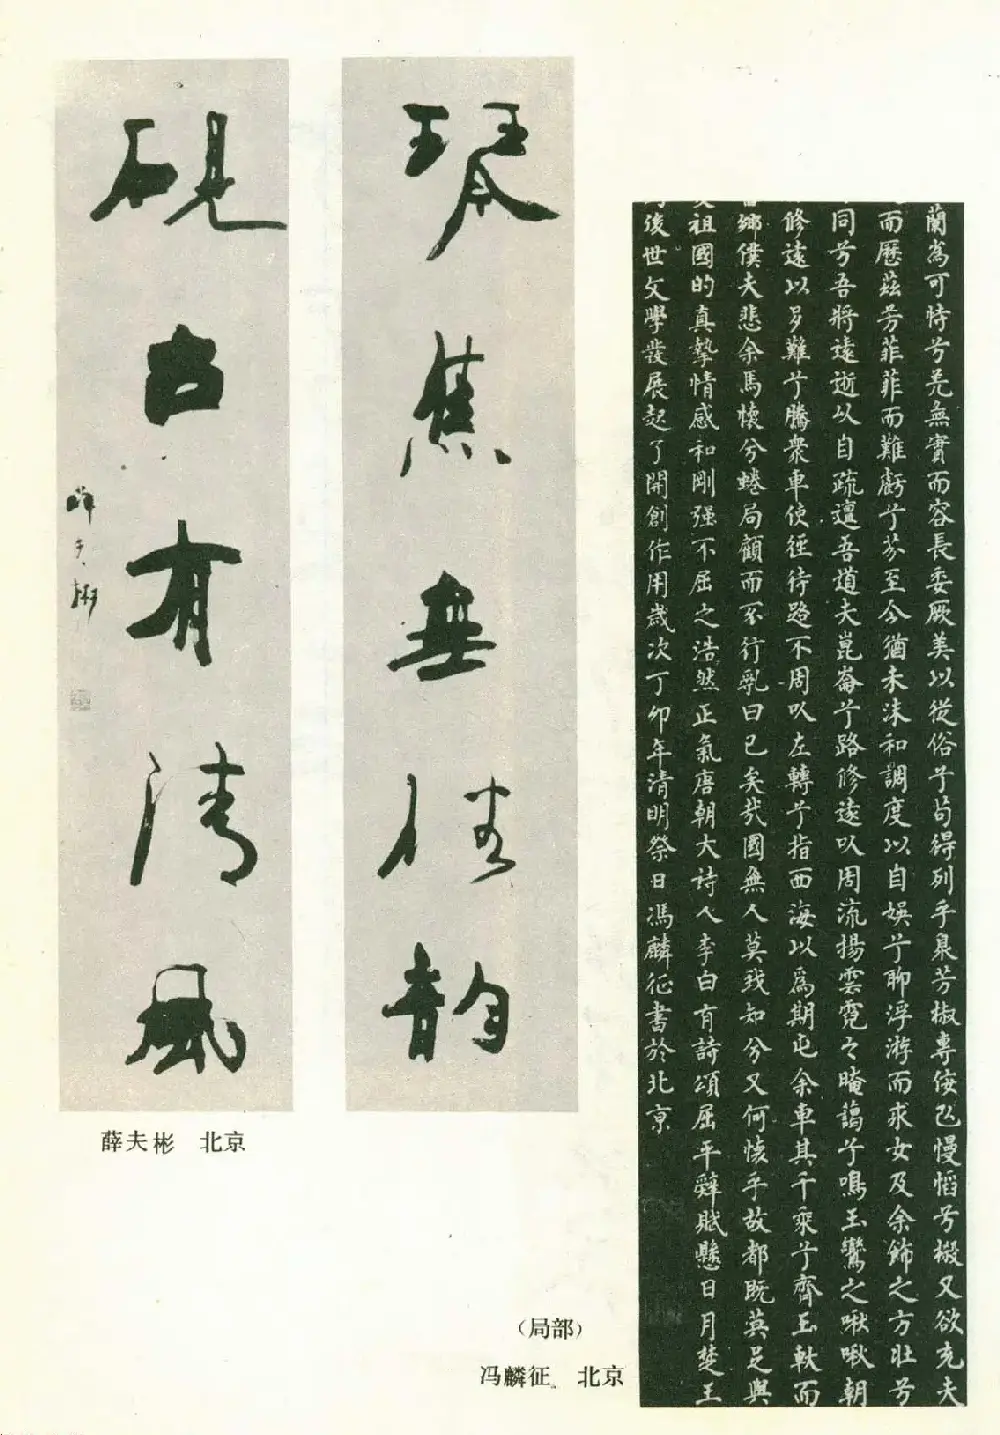 琴焦無俗韻
硯古有清風
薛夫彬
薛夫彬 北京
蘭爲可恃兮羌無實而容長委厥美以從俗兮苟得列乎衆芳椒專佞㠯慢慆兮樧又欲充夫
而歷茲芳菲菲而難虧兮芬至今猶未沬和調度以自娛兮聊浮游而求女及余飾之方壯兮
同兮吾將遠逝以自疏邅吾道夫崑崙兮路修遠以周流揚雲霓之晻藹兮鳴玉鸞之啾啾朝
修遠以多難兮騰衆車使徑待路不周以左轉兮指西海以爲期屯余車其千乘兮齊玉軑而
鄉僕夫悲余馬懷兮蜷局顧而不行亂曰已矣哉國無人莫我知兮又何懷乎故都既莫足與
祖國的真摯情感和剛强不屈之浩然正氣唐朝大詩人李白有詩頌屈平辭賦懸日月楚王
後世文學發展起了開創作用歲次丁卯年清明祭日馮麟征書於北京
（局部）
冯麟征 北京